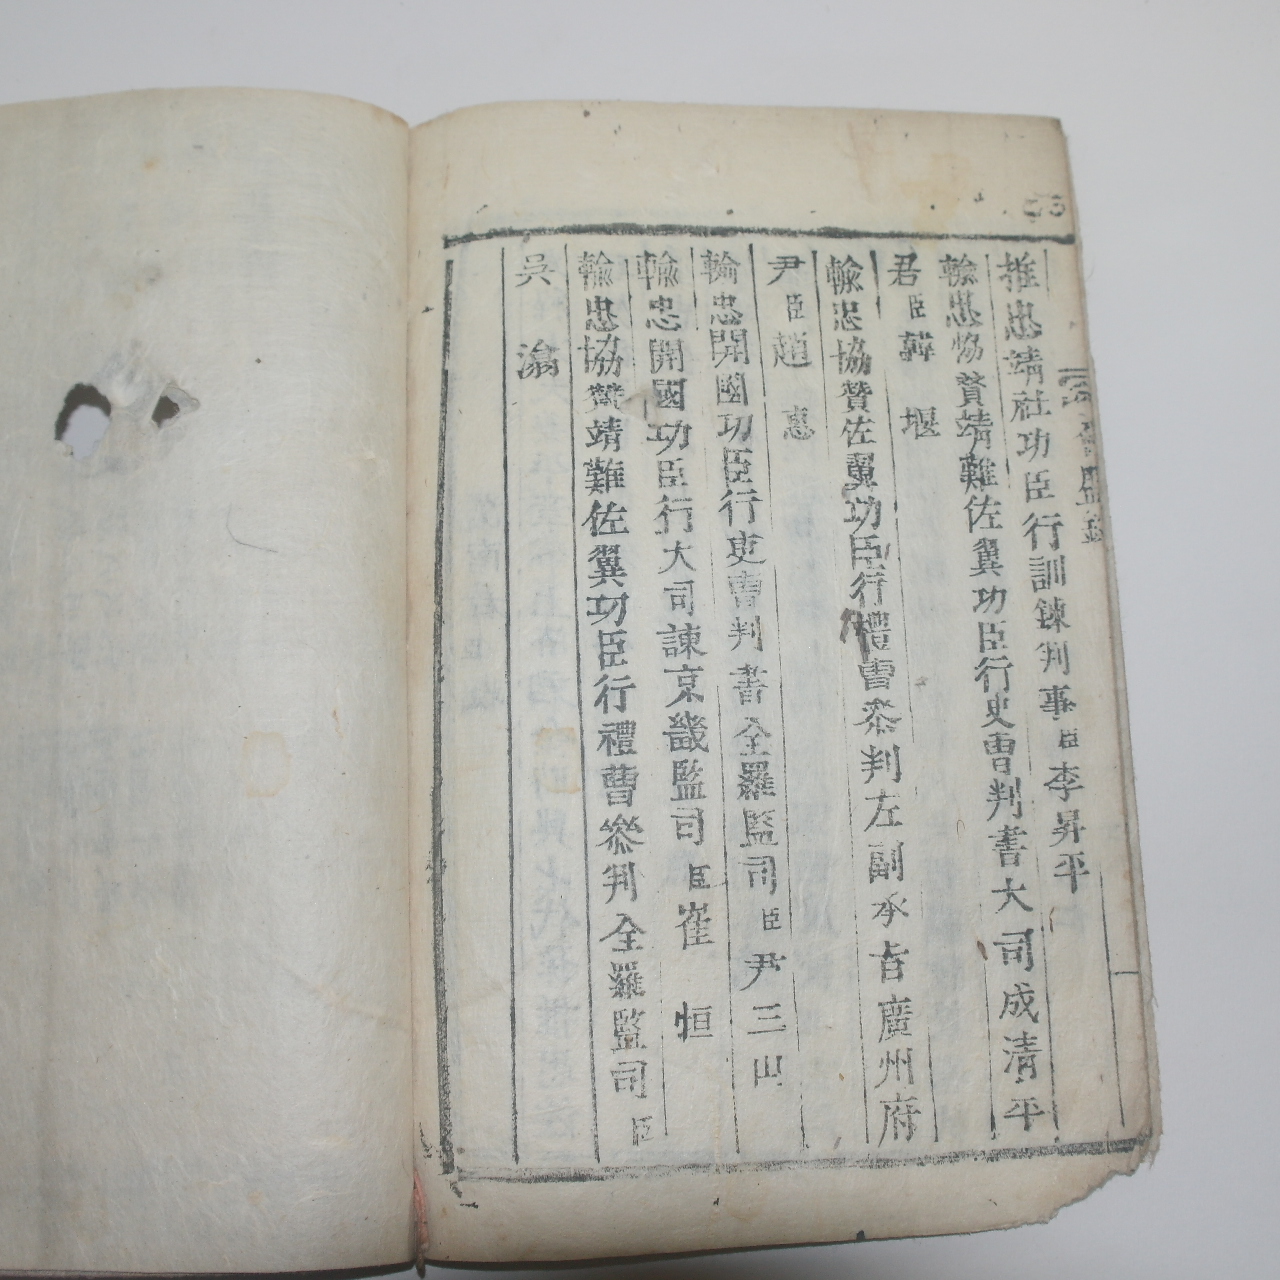 會盟錄
推忠靖社功臣行訓鍊判事臣李昇平
輸忠協贊靖難佐翼功臣行吏曹判書大司成淸平
君臣韓 堰
輸忠協贊佐翼功臣行禮曹叅判左副承旨廣州府
尹臣趙 惠
輸忠開國功臣行吏曹判書全羅監司臣尹三山
輸忠開國功臣行大司諫京畿監司臣崔 恒
輸忠協贊靖難佐翼功臣行禮曹叅判全羅監司臣
吳 滃